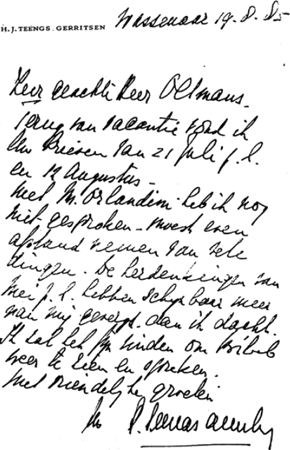 H.J. TEENGS. GERRITSEN Wassenaar 19.8.85
Zeer geachte Heer Oltmans.
Terug van vacantie vond ik
Uw brieven van 21 juli j.l.
en 19 Augustus.
Met M. Orlandini heb ik nog
niet gesproken - moest even
afstand nemen van vele
dingen. De herdenkingen van
mei j.l. hebben schijnbaar meer
van mij gevergd dan ik dacht.
Ik zal het fijn vinden om
weer te zien en spreken.
Met vriendelijke groeten